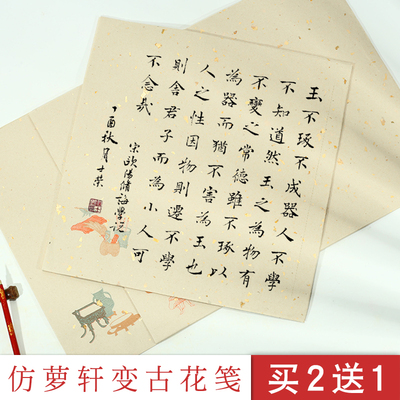 玉不琢不成器人不學
不知道然玉之為物有
不變之常德雖不琢以
為器而猶不害為玉也
人之性因物則遷不學
則舍君子而為小人可
不念哉
宋歐陽脩誨學說
丁酉秋月士荣
仿萝轩变古花笺
买2送1